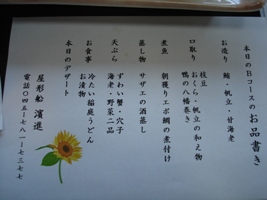 本日のBコースのお品書き
お造り　鮪・帆立・甘海老
口取り　枝豆
おくら・帆立の和え物
鴨の八幡巻き
煮魚　朝獲りエボ鯛の煮付け
蒸し物　サザエの酒蒸し
天ぷら　ずわい蟹・穴子
海老・野菜二品
お食事　冷たい稲庭うどん
お漬物
本日のデザート
屋形船　濱進
電話〇四五-七八一-七三七七